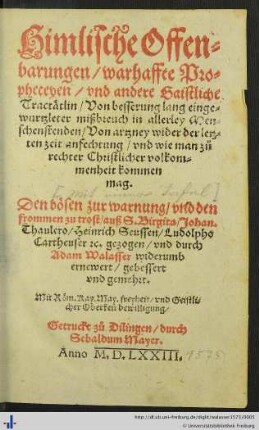 Himlische Offen-
barungen / warhaffte Pro-
pheceyen / vnd andere Gaistliche
Tractätlin / Von besserung lang einge-
wurtzleter mißbreuch in allerley Men-
schenstenden / Von artzney wider der letz-
ten zeit anfechtung / vnd wie man zů
rechter Christlicher volkom-
menheit kommen
mag.
Den bösen zur warnung / vnd den
frommen zu trost / auß S. Birgita / Johan.
Thaulero / Heinrich Seussen / Ludolpho
Cartheuser ꝛc. gezogen / vnd durch
Adam Walasser widerumb
ernewert / gebessert
vnd gemehrt.
Mit Röm. Kay. May. freyheit / vnd Geistli-
cher Oberkeit bewilligung /
Getruckt zů Dilingen / durch
Sebaldum Mayer.
Anno M. D. LXXIII. 1573
© Universitätsbibliothek Freiburg